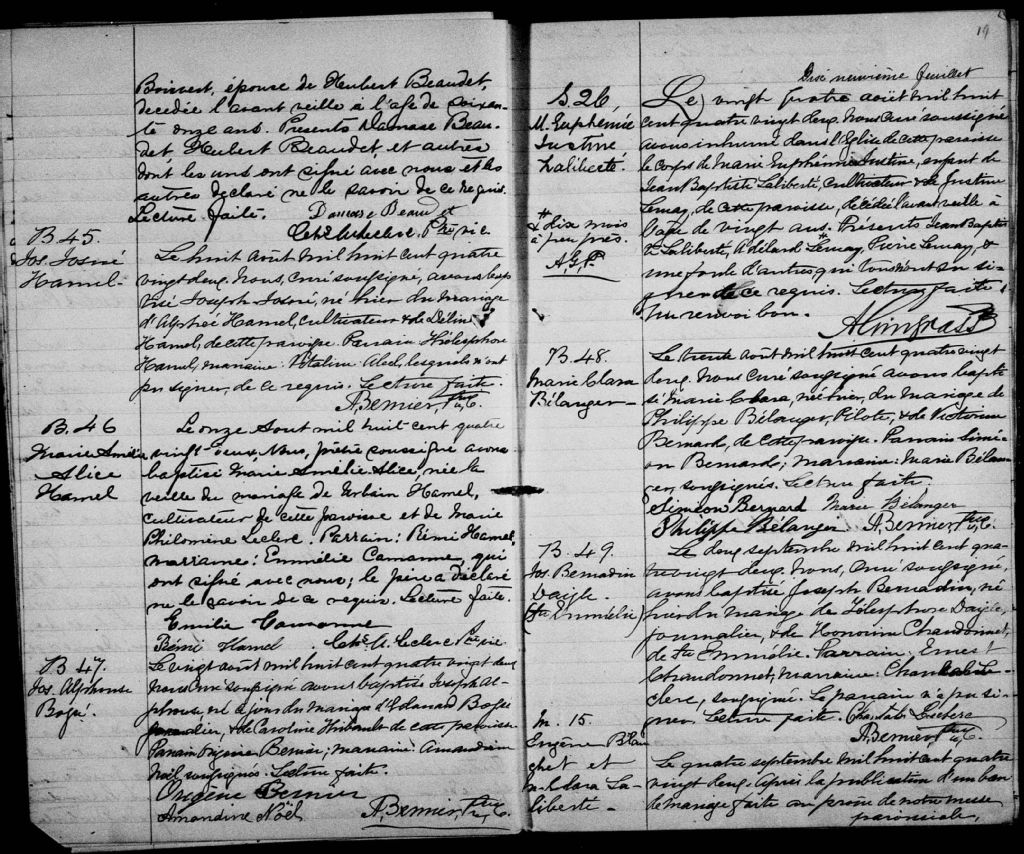 Boisvert, épouse de Hubert Beaudet,
decedée l'avant veille à l'age de soixan-
te onze ans. Presents Damase Beau-
det Hubert Beaudet, et autres
dont les uns ont signé avec nous et les
autres déclaré ne le savoir de ce requis.
Lecture faite. Damase Beaudet
Chs Leclerc Ptre vic
B. 45.
Jos. Josué
Hamel-
Le huit août mil huit cent quatre
vingt deux. Nous, curé soussigné, avons bap
tisé Joseph Josué, né hier du mariage
d'Alphée Hamel, cultivateur & de Délina
Hamel, de cette paroisse. Parrain Thélesphore
Hamel, marraine: Vitaline Abel, lesquels n'ont
pu signer, de ce requis. Lecture faite.
A. Bernier, Ptre C.
B. 46
Marie Amélie
Alice
Hamel
Le onze Aout mil huit cent quatre
vingt deux. Nous, prêtre soussigné avons
baptisé Marie Amélie Alice, née la
veille du mariage de Urbain Hamel,
cultivateur de cette paroisse et de Marie
Philomène Leclerc. Parrain: Rémi Hamel,
marraine: Emmélie Camanne, qui
ont signé avec nous; le père a déclaré
ne le savoir de ce requis. Lecture faite.
Emilie Camanne
Rémi Hamel Chs. Leclerc Ptre vic
B 47.
Jos. Alphonse
Bogé.
Le vingt août mil huit cent quatre vingt deux
nous curé soussigné avons baptisé Joseph Al-
phonse, né ce jour du mariage d'Edouard Bogé
journalier, & de Caroline Thibault de cette paroisse
Parrain Onézime Bernier; marraine: Amandine
Noël soussignés. Lecture faite.
Onézine Bernier
Amandine Noël A. Bernier, Ptre C.
19
Dix neuvième feuillet
S. 26,
M. Euphémie
Justine
Laliberté.
# dix mois
à peu près.
A.G. P.
Le vingt quatre août mil huit
cent quatre vingt deux. Nous curé soussigné
avons inhumé dans l'Eglise de cette paroisse
le corps de Marie Euphémie Justine, enfant de
Jean Baptiste Laliberté, cultivateur & de Justine
Lemay, de cette paroisse, décédée l'avant veille à
l'age de vingt ans. Présents Jean Baptis
te Laliberté, Adélard Lemay, Pierre Lemay, &
une foule d'autres qui
gner de ce requis. Lecture faite
# un renvoi bon.
A Gingras P
B. 48.
Marie Clara
Bélanger-
Le trente août mil huit cent quatre vingt
deux. Nous curé soussigné avons bapti
sé Marie Clara, née hier, du mariage de
Philippe Bélanger, Pilote, & de Victorine
Bernard, de cette paroisse. Parrain Simé-
on Bernard; marraine: Marie Bélan
ger, soussignés. Lecture faite.
Siméon Bernard Marie Bélanger
Philippe Bélanger A. Bernier, Ptre C.
B. 49.
Jos. Bernadin
Daigle.
(Ste Emmélie)
Le deux septembre mil huit cent qua-
tre vingt deux. Nous, Curé soussigné,
avons baptisé Joseph Bernadin, né
hier du mariage de Télesphore Daigle,
journalier, & de Honorine Chandonnet,
de Ste Emmélie. Parrain, Ernest
Chandonnet, marraine: Chantale Le-
clerc, soussigné. Le parrain n'a pu si-
gner. Lecture faite. Chantale Leclerc
A. Bernier, Ptre C.
M. 15.
Eugène Blan
chet et
M. Clara La-
liberté-
Le quatre septembre mil huit cent quatre
vingt deux. Après la publication d'un ban
de mariage faite au prône de notre messe
paroissiale,